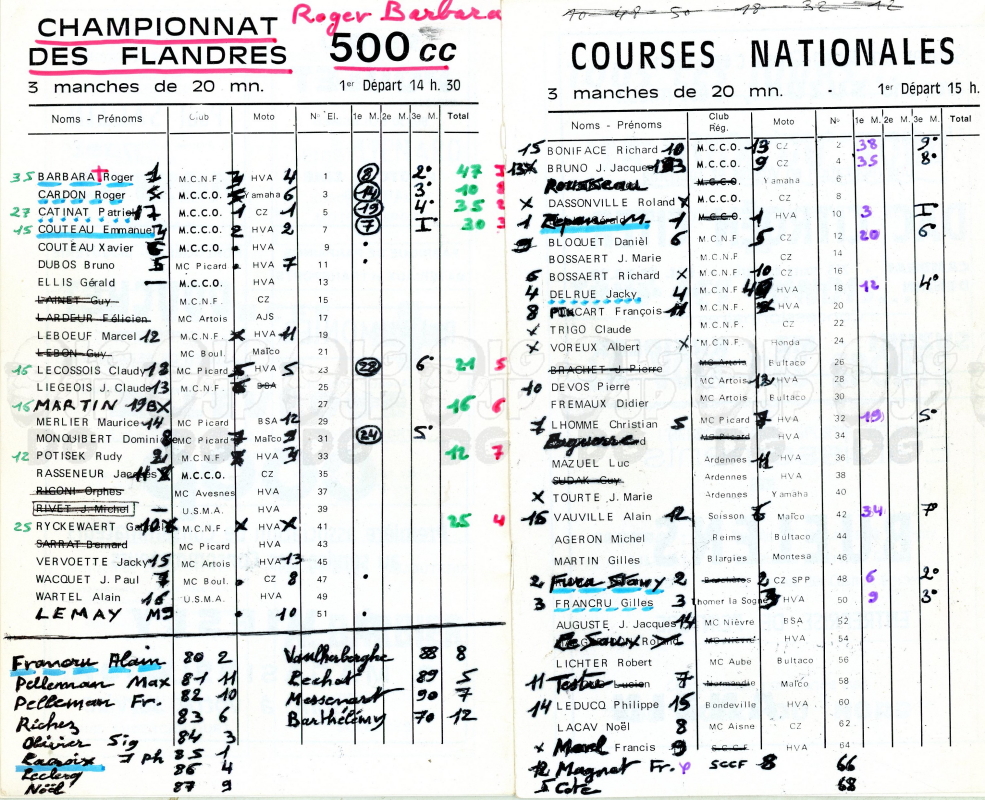 Roger Barbara
CHAMPIONNAT
DES FLANDRES 500 cc
3 manches de 20 mn. 1er Départ 14 h. 30
Noms - Prénoms Club Moto N° El. 1e M. 2e M. 3e M. Total
35 BARBARA Roger 1 M.C.N.F. HVA 4 1 8 2° 47
CARDON Roger M.C.C.O. Yamaha 6 3 14 3° 10 8
27 CATINAT Patrick 17 M.C.C.O. 1 CZ 1 5 19 4° 35 2
15 COUTEAU Emmanuel M.C.C.O. 2 HVA 2 7 7 I° 30 3
COUTEAU Xavier M.C.C.O. HVA 9
DUBOS Bruno MC Picard HVA 7 11
ELLIS Gérald M.C.C.O. HVA 13
LAINET Guy M.C.N.F. CZ 15
LARDEUR Félicien MC Artois AJS 17
LEBOEUF Marcel 12 M.C.N.F. x HVA 11 19
LEBON Guy MC Boul. Maïco 21
16 LECOSSOIS Claudy MC Picard HVA 5 23 28 6° 21 5
LIEGEOIS J. Claude 13 M.C.N.F. 6 BSA 25
16 MARTIN 19BX 27 16 6
MERLIER Maurice 14 MC Artois BSA 12 29
MONQUIBERT Dominique MC Picard Maïco 31 24 5°
12 POTISEK Rudy M.C.N.F. HVA 33 12 7
RASSENEUR Jacques M.C.C.O. CZ 35
RIGONI Orphes MC Avesnes HVA 37
RIVET J. Michel U.S.M.A. HVA 39
25 RYCKEWAERT M.C.N.F. x HVA x 41 25 4
SARRAT Bernard MC Picard HVA 43
VERVOETTE Jacky 15 MC Artois HVA 13 45
WACQUET J. Paul 7 MC Boul. CZ 8 47
WARTEL Alain 16 U.S.M.A. HVA 49
LEMAY 10 51
Francru Alain 80 2 Vaulherberghe 88 8
Pelleman Max 81 11 Bechot 89 5
Pelleman Fr. 82 10 Messenart 90 7
Richez 83 6 Barthélémy 70 12
Olivier Sig 84 3
Lacroix J Ph 85 1
Leclerq 86 4
Noël 87 9
COURSES NATIONALES
3 manches de 20 mn. 1er Départ 15 h.
Noms - Prénoms Club Rég. Moto N° 1e M. 2e M. 3e M. Total
15 BONIFACE Richard 10 M.C.C.O. CZ 2 38 9°
BRUNO J. Jacques M.C.C.O. 9 CZ 4 35 8°
Rousseau M.C.C.O. Yamaha 6
x DASSONVILLE Roland x M.C.C.O. CZ 8
1 M. 1 M.C.C.O. 1 HVA 10 3 I°
BLOQUET Danièl 6 M.C.N.F. 5 CZ 12 20 6°
BOSSAERT J. Marie M.C.N.F. CZ 14
6 BOSSAERT Richard x M.C.N.F. 10 CZ 16
4 DELRUE Jacky 4 M.C.N.F. HVA 18 12 4°
8 PINCART François M.C.N.F. HVA 20
x TRIGO Claude M.C.N.F. CZ 22
x VOREUX Albert x M.C.N.F. Honda 24
BRACHET J. Pierre MC Artois Bultaco 26
10 DEVOS Pierre MC Artois HVA 28
FREMAUX Didier MC Artois Bultaco 30
LHOMME Christian 5 MC Picard 7 HVA 32 19 5°
MC Picard HVA 34
MAZUEL Luc Ardennes 11 HVA 36
SUDAK Guy Ardennes HVA 38
x TOURTE J. Marie Ardennes Yamaha 40
VAUVILLE Alain 12 Soisson 6 Maïco 42 34 7°
AGERON Michel Reims Bultaco 44
MARTIN Gilles Blargies Montesa 46
2 Fura Stany 2 2 CZ SPP 48 6 2°
3 FRANCRU Gilles 3 Thomer la Sogne 3 HVA 50 9 3°
AUGUSTE J. Jacques 14 MC Nièvre BSA 52
MC Nièvre HVA 54
LICHTER Robert MC Aube Bultaco 56
11 Lucien 7 Normandie Maïco 58
14 LEDUCQ Philippe 15 Bondeville HVA 60
LACAV Noël 8 MC Aisne CZ 62
x Francis 9 S.C.C.F. HVA 64
12 Magnet Fr. SCCF 8 66
Cote 68